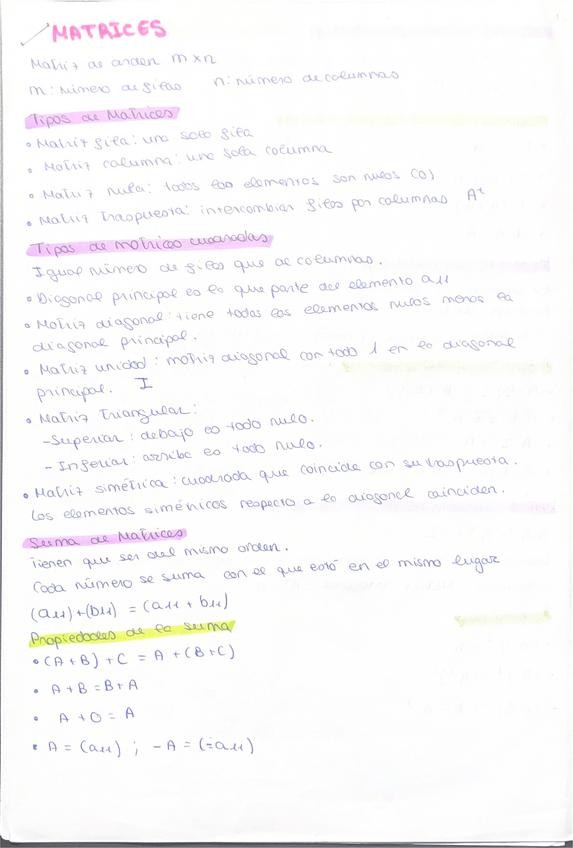 MATRICES
Matriz de orden m x n
m: número de filas n: número de columnas
Tipos de Matrices
• Matriz fila: una sola fila
• Matriz columna: una sola columna
• Matriz nula: todos los elementos son nulos (0)
• Matriz Traspuesta: intercambiar filas por columnas Aᵗ
Tipos de matrices cuadradas
Igual número de filas que de columnas.
• Diagonal principal es la que parte del elemento a₁₁
• Matriz diagonal: tiene todos los elementos nulos menos la
diagonal principal.
• Matriz unidad: matriz diagonal con todo 1 en la diagonal
principal. I
• Matriz Triangular:
- Superior: debajo es todo nulo.
- Inferior: arriba es todo nulo.
• Matriz simétrica: cuadrada que coincide con su traspuesta.
Los elementos simétricos respecto a la diagonal coinciden.
Suma de Matrices
Tienen que ser del mismo orden.
Cada número se suma con el que está en el mismo lugar
(a₁₁)+(b₁₁) = (a₁₁ + b₁₁)
Propiedades de la suma
• (A+B)+C = A+(B+C)
• A+B = B+A
• A+O = A
• A = (a₁₁) ; -A = (-a₁₁)